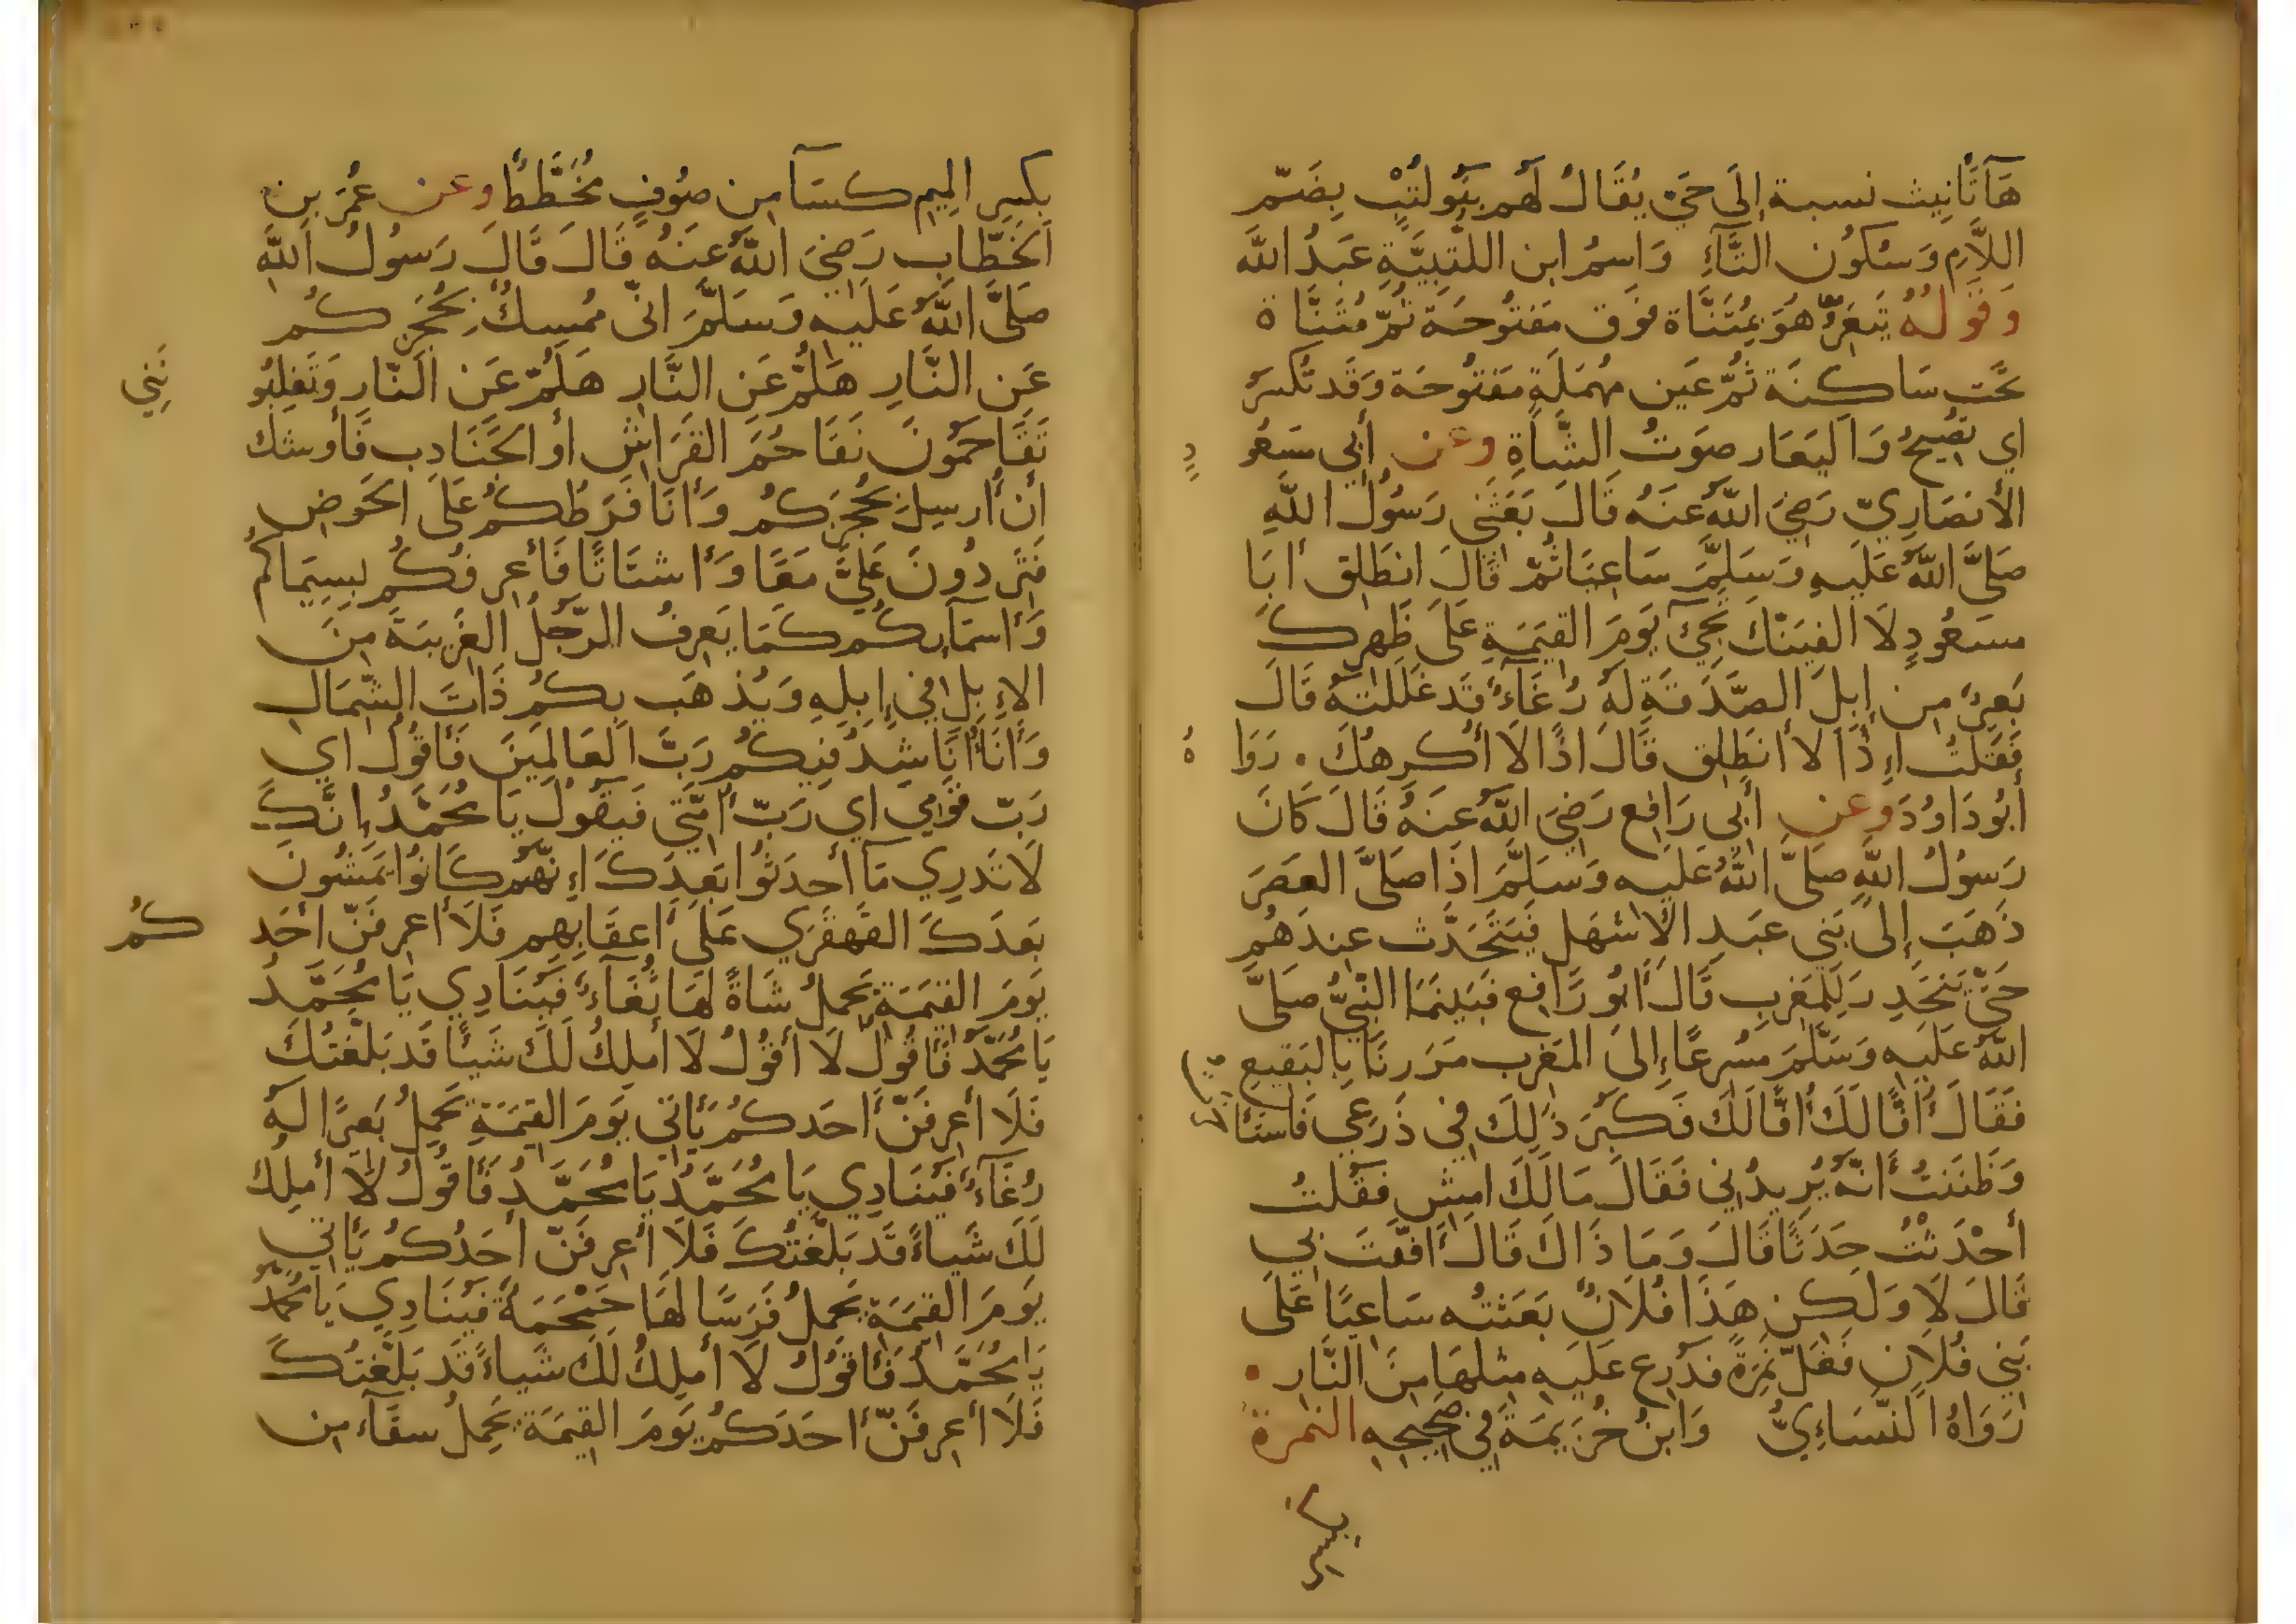 هَآ تَأنِيث نسبة إِلَى حَيّ يُقَالُ لَهُم بَنُو لُتْبٍ بِضَمّ
اللَّامِ وَسُكُون التَّآءِ وَاسمُ ابن اللتبِيَّةِ عَبدُ اللَّه
وَقَولُهُ تَيعَرُّ هُوَ بِمُثَنَّاة فوَق مَفتُوحَة ثمّ مُثَنَّاة
تحَت سَاكِنَة ثُمّ عَين مهُمَلَةٍ مَفتُوحَة وَقَد تُكسَرُ
اي تصِيحُ وَاليَعَار صوَتُ الشَّاةِ وعن أبِي مسَعُو
دٍ
الأنصَارِيّ رَضِيَ اللَّهُ عَنهُ قَالَ بَعَثَنِي رَسُولُ اللَّهِ
صَلَّى اللَّهُ عَلَيهِ وَسَلَّمَ سَاعِيًا ثُمّ قَالَ انطَلِق أبَا
مسَعُودٍ لَا الفِيَنّكَ تجَِيٓ يَومَ القِيَمَةِ عَلَى ظَهرِكَ
بَعِيرٌ مِن إِبِلِ الصَّدَقَةِ لَهُ رُغَآءٌ قَد غَلَلتَهُ قَالَ
فَقُلتُ إِذًا لا أنطَلِق قَالَ اذًا لَا أُكرِهُكَ . رَوَا
هُ
أبُو دَاوُدَ وعن أبِي رَافِع رَضِيَ اللَّهُ عَنهُ قَالَ كَانَ
رَسوُلُ اللَّهِ صلَّى اللَّهُ عَلَيهِ وَسَلَّمَ اذَا صَلَّى العَصَرَ
ذَهَبَ إِلىَ بَنِي عبَدِ الاشهَلِ فيَتَحَدَّث عِندَهُم
حَتَّى يَنحَدِرَ لِلمَغرِبِ قَالَ أبُو رَافِع فَبَينَمَا النَّبِيُّ صَلَّى
اللَّهُ عَلَيهِ وَسَلَّمَ مسُرِعًا إِلىَ المَغرِب مَرَرنَا بِالبَقِيعِ
فَقَالَ أُفًّا لَكَ أُفًّا لَكَ فَكَبُرَ ذَلِكَ فِي ذَرعِي فَاستَأ
خرت
وَظَنَنتُ أَنّهُ يُرِيدُنِي فَقَالَ مَا لَكَ امِشِ فَقُلتُ
أحْدَثتُ حَدَثًا قَالَ وَمَا ذَاكَ قَالَ أفّفَتَ بِي
قَالَ لَا وَلَكِن هَذَا فُلَانٌ بَعَثتُه سَاعِيًا عَلَى
بَنِي فُلَان فَغَلّ نَمِرَةً فدُرِع عَلَيهِ مِثلهَا مِنَ النَّار .
رَوَاهُ النَّسَاءِيُّ وَابنُ خُزَيمَةَ فِي صَحِيحِهِ النمرة
بكسر
بِكسِرِ المِيمِ كسَآ مِن صوُفٍ مُخَطَّط وعن عُمَرَ بن
الخَطَّابِ رَضِيَ اللَّهُ عَنهُ قَالَ قَالَ رَسوُلُ اللَّهِ
صَلَّى اللَّهُ عَلَيهِ وَسَلَّمَ انّي مُمسِكٌ بِحُجَزِكُم
عَنِ النَّارِ هَلُمّ عَنِ النَّارِ هَلُمّ عَنِ النَّارِ وَتَغلِبُو
نَنِي
تَقَاحمَُونَ تَقَاحُمَ الفَرَاشِ أو الجَنَادِب فَأوشك
أن أُرسِلَ بِحُجَزِكُم وَأنَا فَرَطُكُم عَلَى الحَوضِ
فَتَرِدُونَ عَلَيَّ مَعًا وَأشتَاتًا فَأعرِفُكُم بِسِيمَاكُم
وَأسمَآىِكُم كمَا يَعرِفُ الرّجُلُ الغَرِيبَةَ مِنَ
الإِبِلِ فِي إِبِلِهِ وَيُذهَب بِكُم ذَاتَ الشِّمَالِ
وَأنَا أُنَاشِدُ فِيكُم رَبَّ العَالَمِينَ فَأقُولُ اي
رَبّ قَومِي اي رَبّ أمَّتِي فَيَقُولُ يَا مُحَمَّدُ إِنّكَ
لَا تَدرِي مَآ أحدَثُوا بَعدَكَ إِنّهُم كَانُوا يَمشُونَ
بَعدَكَ القَهقَرَي عَلَى أعقَابِهِم فَلَا أعرِفَنّ أحَد
كُم
يَومَ القِيَمَةِ يَحمِلُ شَاةً لَهَا ثُغَآءٌ فَيُنَادِي يَا مُحَمَّدُ
يَا مُحَمَّدُ فَأقُولُ لَا أقُولُ لَا أملِكُ لَكَ شَيئًا قَد بَلّغتُكَ
فَلَا أعرِفَنّ أحَدكُم يَأتِي يَومَ القِيَمَةِ يَحمِلُ بَعِيرًا لَهُ
رُغَآءٌ فَيُنَادِي يَا مُحَمَّدُ يَا مُحَمَّدُ فَأقُولُ لَا أملِكُ
لَكَ شَيأً قَد بَلَّغتُكَ فَلَا أعرِفَنّ أحَدُكُم يَأتِي
يَومَ القِيَمَةِ يَحمِلُ فَرَسًا لَهَا حَمْحَمَةٌ فَيُنَادِي يَا مُحَمَّدُ
يَا مُحَمَّدُ فَأقُولُ لَا أملِكُ لَكَ شَيأً قَد بَلَّغتُكَ
فَلَا أعرِفَنّ أحَدَكُم يَومَ القِيَمَةِ يَحمِلُ سقَآءً مِن